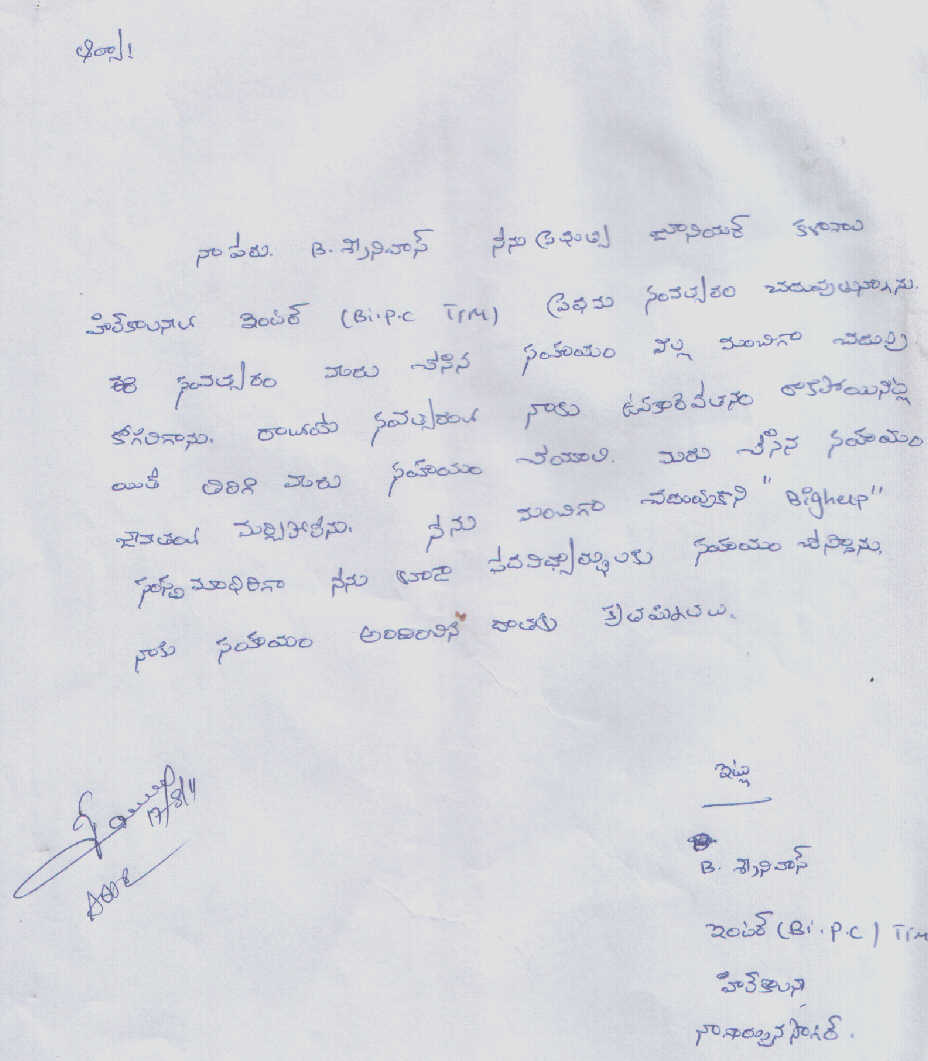 ఆర్యా!
నా పేరు. B. శ్రీనివాస్ నేను ప్రభుత్వ జూనియర్ కళాశాల
హిల్‌కాలనీలో ఇంటర్ (Bi.P.C T/M) ప్రథమ సంవత్సరం చదువుతున్నాను.
ఈ సంవత్సరం వారు చేసిన సహాయం వల్ల మంచిగా చదువు
కోగలిగాను. రాబోయే సంవత్సరంలో నాకు ఉపకారవేతనం రాకపోయినట్ల
యితే తిరిగి వారు సహాయం చేయాలి. మీరు చేసిన సహాయం
జీవితంలో మర్చిపోలేను. నేను మంచిగా చదువుకొని "Bighelp"
సంస్థ మాదిరిగా నేను కూడా పేదవిద్యార్థులకు సహాయం చేస్తాను.
నాకు సహాయం అందించిన దాతలకు కృతజ్ఞతలు.
ఇట్లు
B. శ్రీనివాస్
ఇంటర్ (Bi.P.C) T/M
హిల్‌కాలని
నాగార్జునసాగర్.
17/8/11